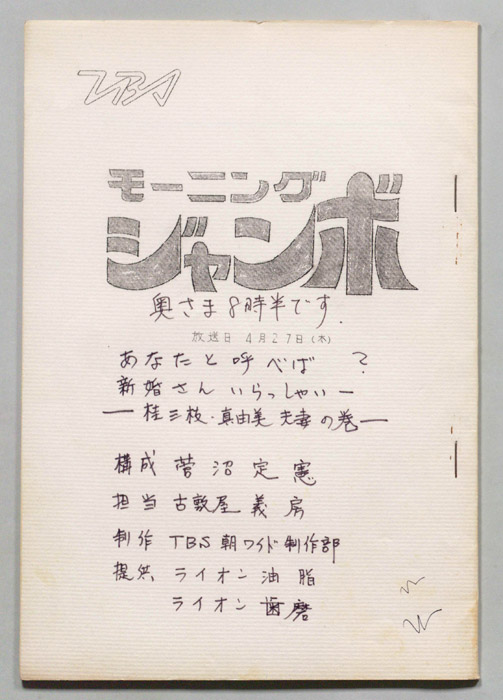 TBS
モーニング
ジャンボ
奥さま8時半です.
放送日 4月27日(木)
あなたと呼べば ?
新婚さんいらっしゃいー
ー桂三枝・真由美 夫妻の巻ー
構成 菅沼定憲
担当 古敷屋義房
制作 TBS朝ワイド制作部
提供 ライオン油脂
ライオン歯磨